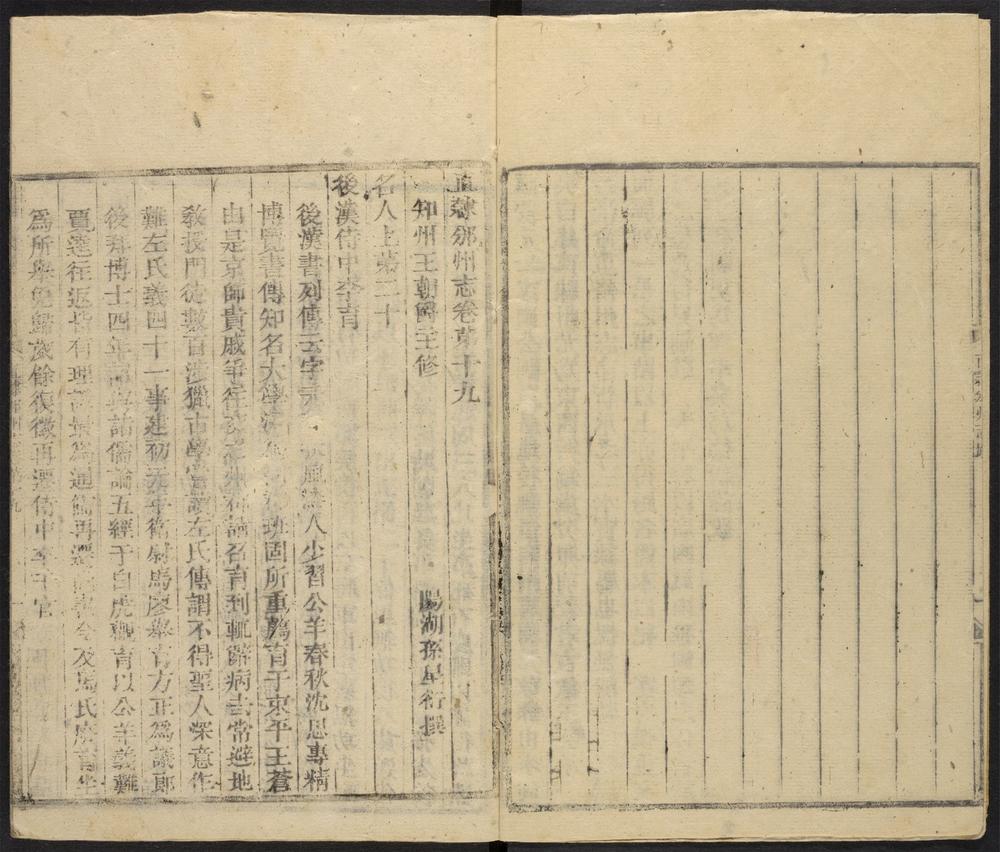 直隸邠州志卷第十九
知州王朝爵主修　陽湖孫星衍撰
名人上第二十
後漢侍中李育
後漢書列傳云字元　　風漆人少習公羊春秋沈思專精
博覽書傳知名太學深為　　班固所重薦育于東平王蒼
由是京師貴戚爭往交之州郡請召育到輒辭病去常避地
教授門徒數百涉獵古學嘗讀左氏傳謂不得聖人深意作
難左氏義四十一事建初元年衛尉馬廖舉育方正為議郎
後拜博士四年詔與諸儒論五經于白虎觀育以公羊義難
賈逵往返皆有理證最為通儒再遷　書令及馬氏廢育坐
為所舉免歸歲餘復徵再遷侍中卒于官